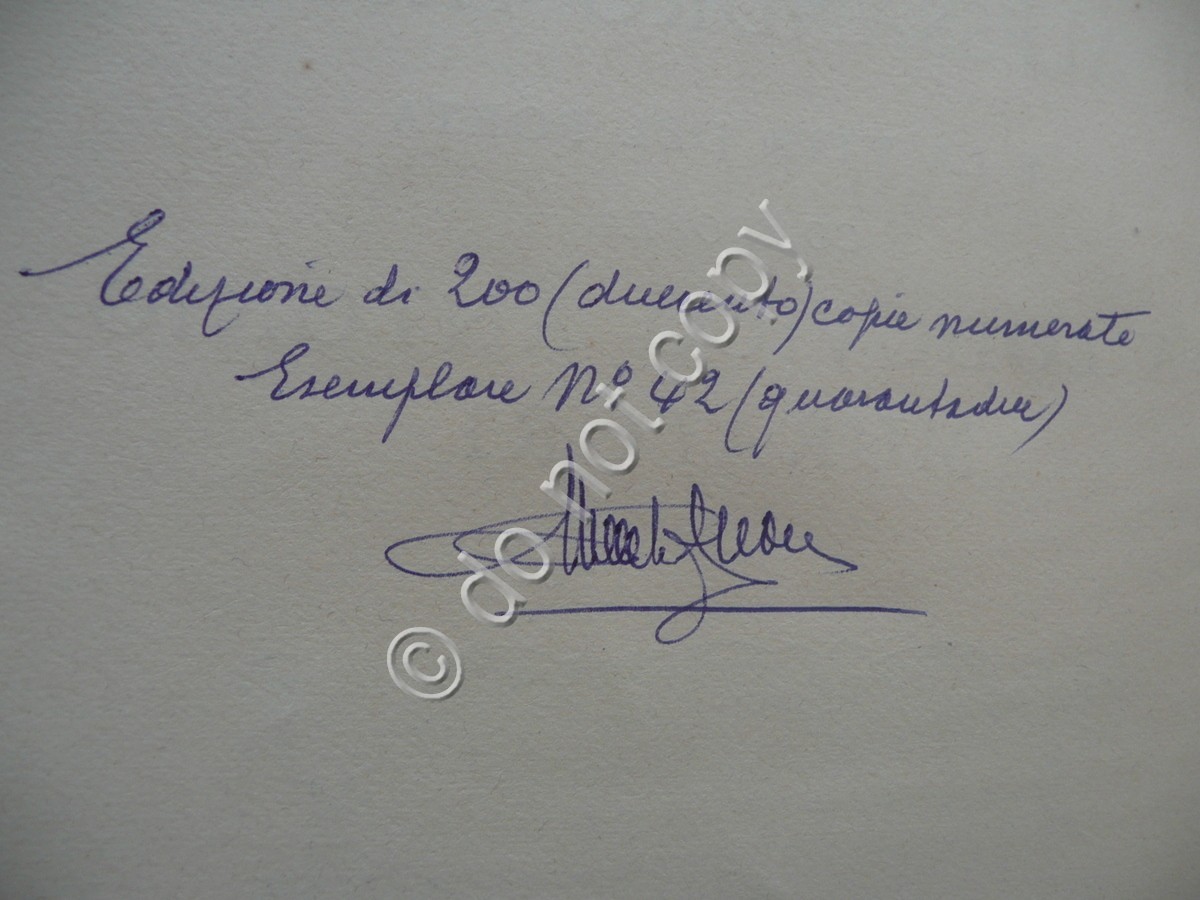 Edizione di 200 (duecento) copie numerate
Esemplare N° 42 (quarantadue)
© do not copy